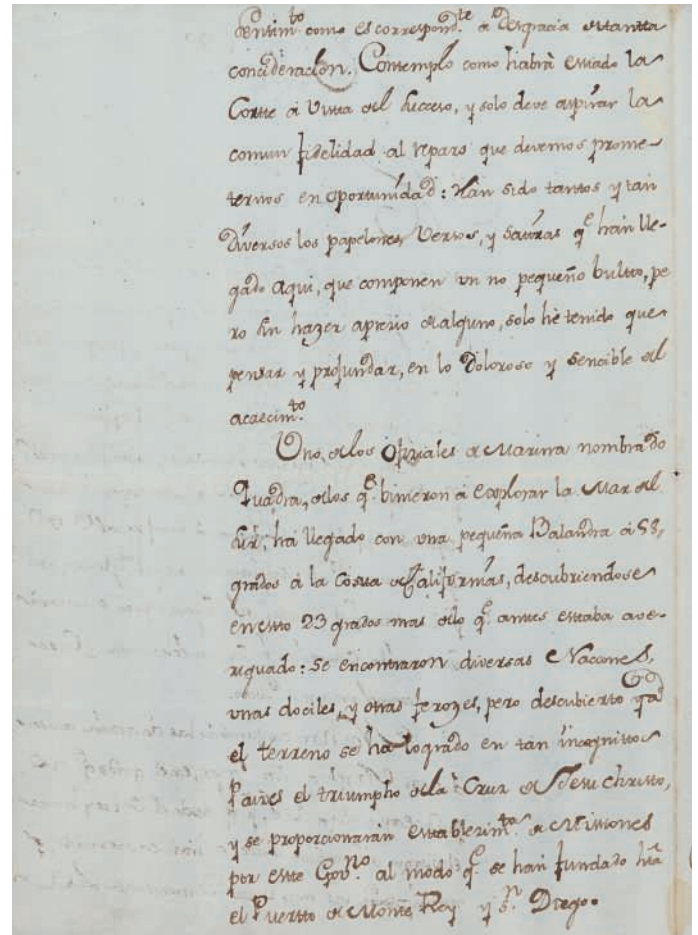 sentim.to como es correspond.te a desgracia de tantta
concideracion. Contemplo como habrà estado la
Cortte à vista del succeso, y solo deve aspirar la
comun fidelidad al reparo que devemos prome-
ternos en oportunidad: Han sido tantos y tan
diversos los papelones, Versos, y Satiras q.e han lle-
gado aqui, que componen un no pequeño bulto, pe
ro sin hazer aprecio de alguno, solo hè tenido que
pensar y profundar, en lo doloroso y sencible del
acaecim.to
Uno, de los Ofiziales de Marina nombrado
Quadra, de los q.e binieron à explorar la Mar del
Sur, ha llegado con una pequeña Balandra à 58,
grados à la Costa de Californias, descubriendose
en esto 23 grados mas de lo q.e antes estaba ave-
riguado: se encontraron diversas Naciones,
unas dociles, y otras ferozes, pero descubierto ya
el terreno se ha logrado en tan incognittos
Paises el triumpho de la Cruz de Jesu Christo,
y se proporcionaràn establecim.tos de Missiones
por este Gov.no al modo q.e se han fundado hta
el Puertto de Monte Rey y S.n Diego.